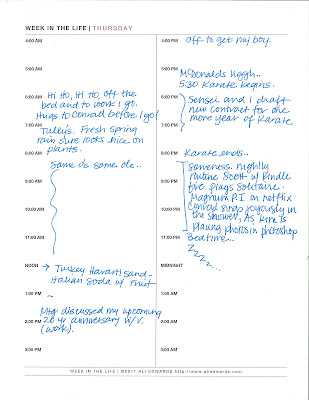 WEEK IN THE LIFE | THURSDAY
4:00 AM
5:00 AM
6:00 AM
Hi Ho, Hi Ho, off the
bed and to work I go.
Hugs to Conrad before I go!
7:00 AM
Tully's. Fresh spring
rain sure looks nice on
plants.
8:00 AM
Same ole same ole...
9:00 AM
10:00 AM
11:00 AM
NOON → Turkey Havarti sand-
Italian Soda w/ fruit
1:00 PM
~
Mtg discussed my upcoming
2:00 PM 20 yr anniversary w/ V.
(work).
3:00 PM
4:00 PM off to get my boy
5:00 PM
McDonalds Uggh..
5:30 Karate begins.
6:00 PM
Sensei and I draft
new contract for one
more year of Karate
7:00 PM
8:00 PM Karate ends...
Sameness. nightly
routine Scott w/ Kindle
9:00 PM
fire plays solitaire.
Magnum P.I. on netflix
10:00 PM
Conrad sings joyously in
the shower, as Kirk is
11:00 PM
playing photos in photoshop
Bedtime...
MIDNIGHT
zzzz...
1:00 AM
2:00 AM
3:00 AM
WEEK IN THE LIFE | ©2011 ALI EDWARDS http://www.aliedwards.com